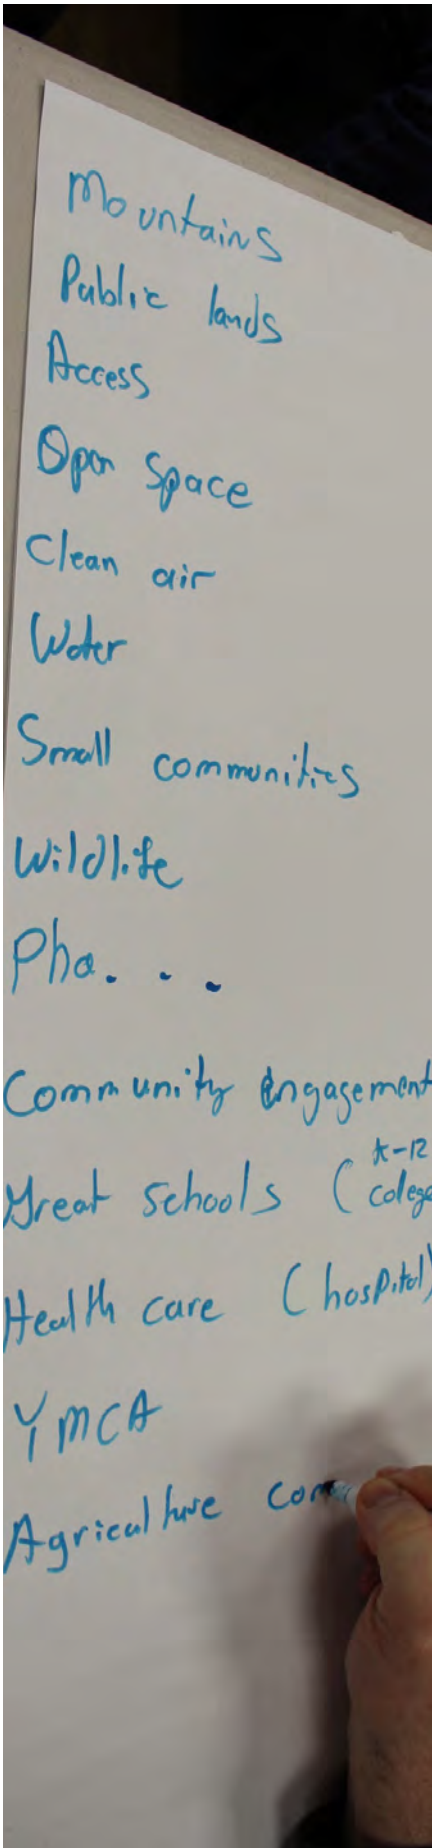 Mountains
Public lands
Access
Open Space
Clean air
Water
Small communities
Wildlife
Pho. . .
Community engagement
Great schools (K-12 colege
Health care (hospital)
YMCA
Agriculture com